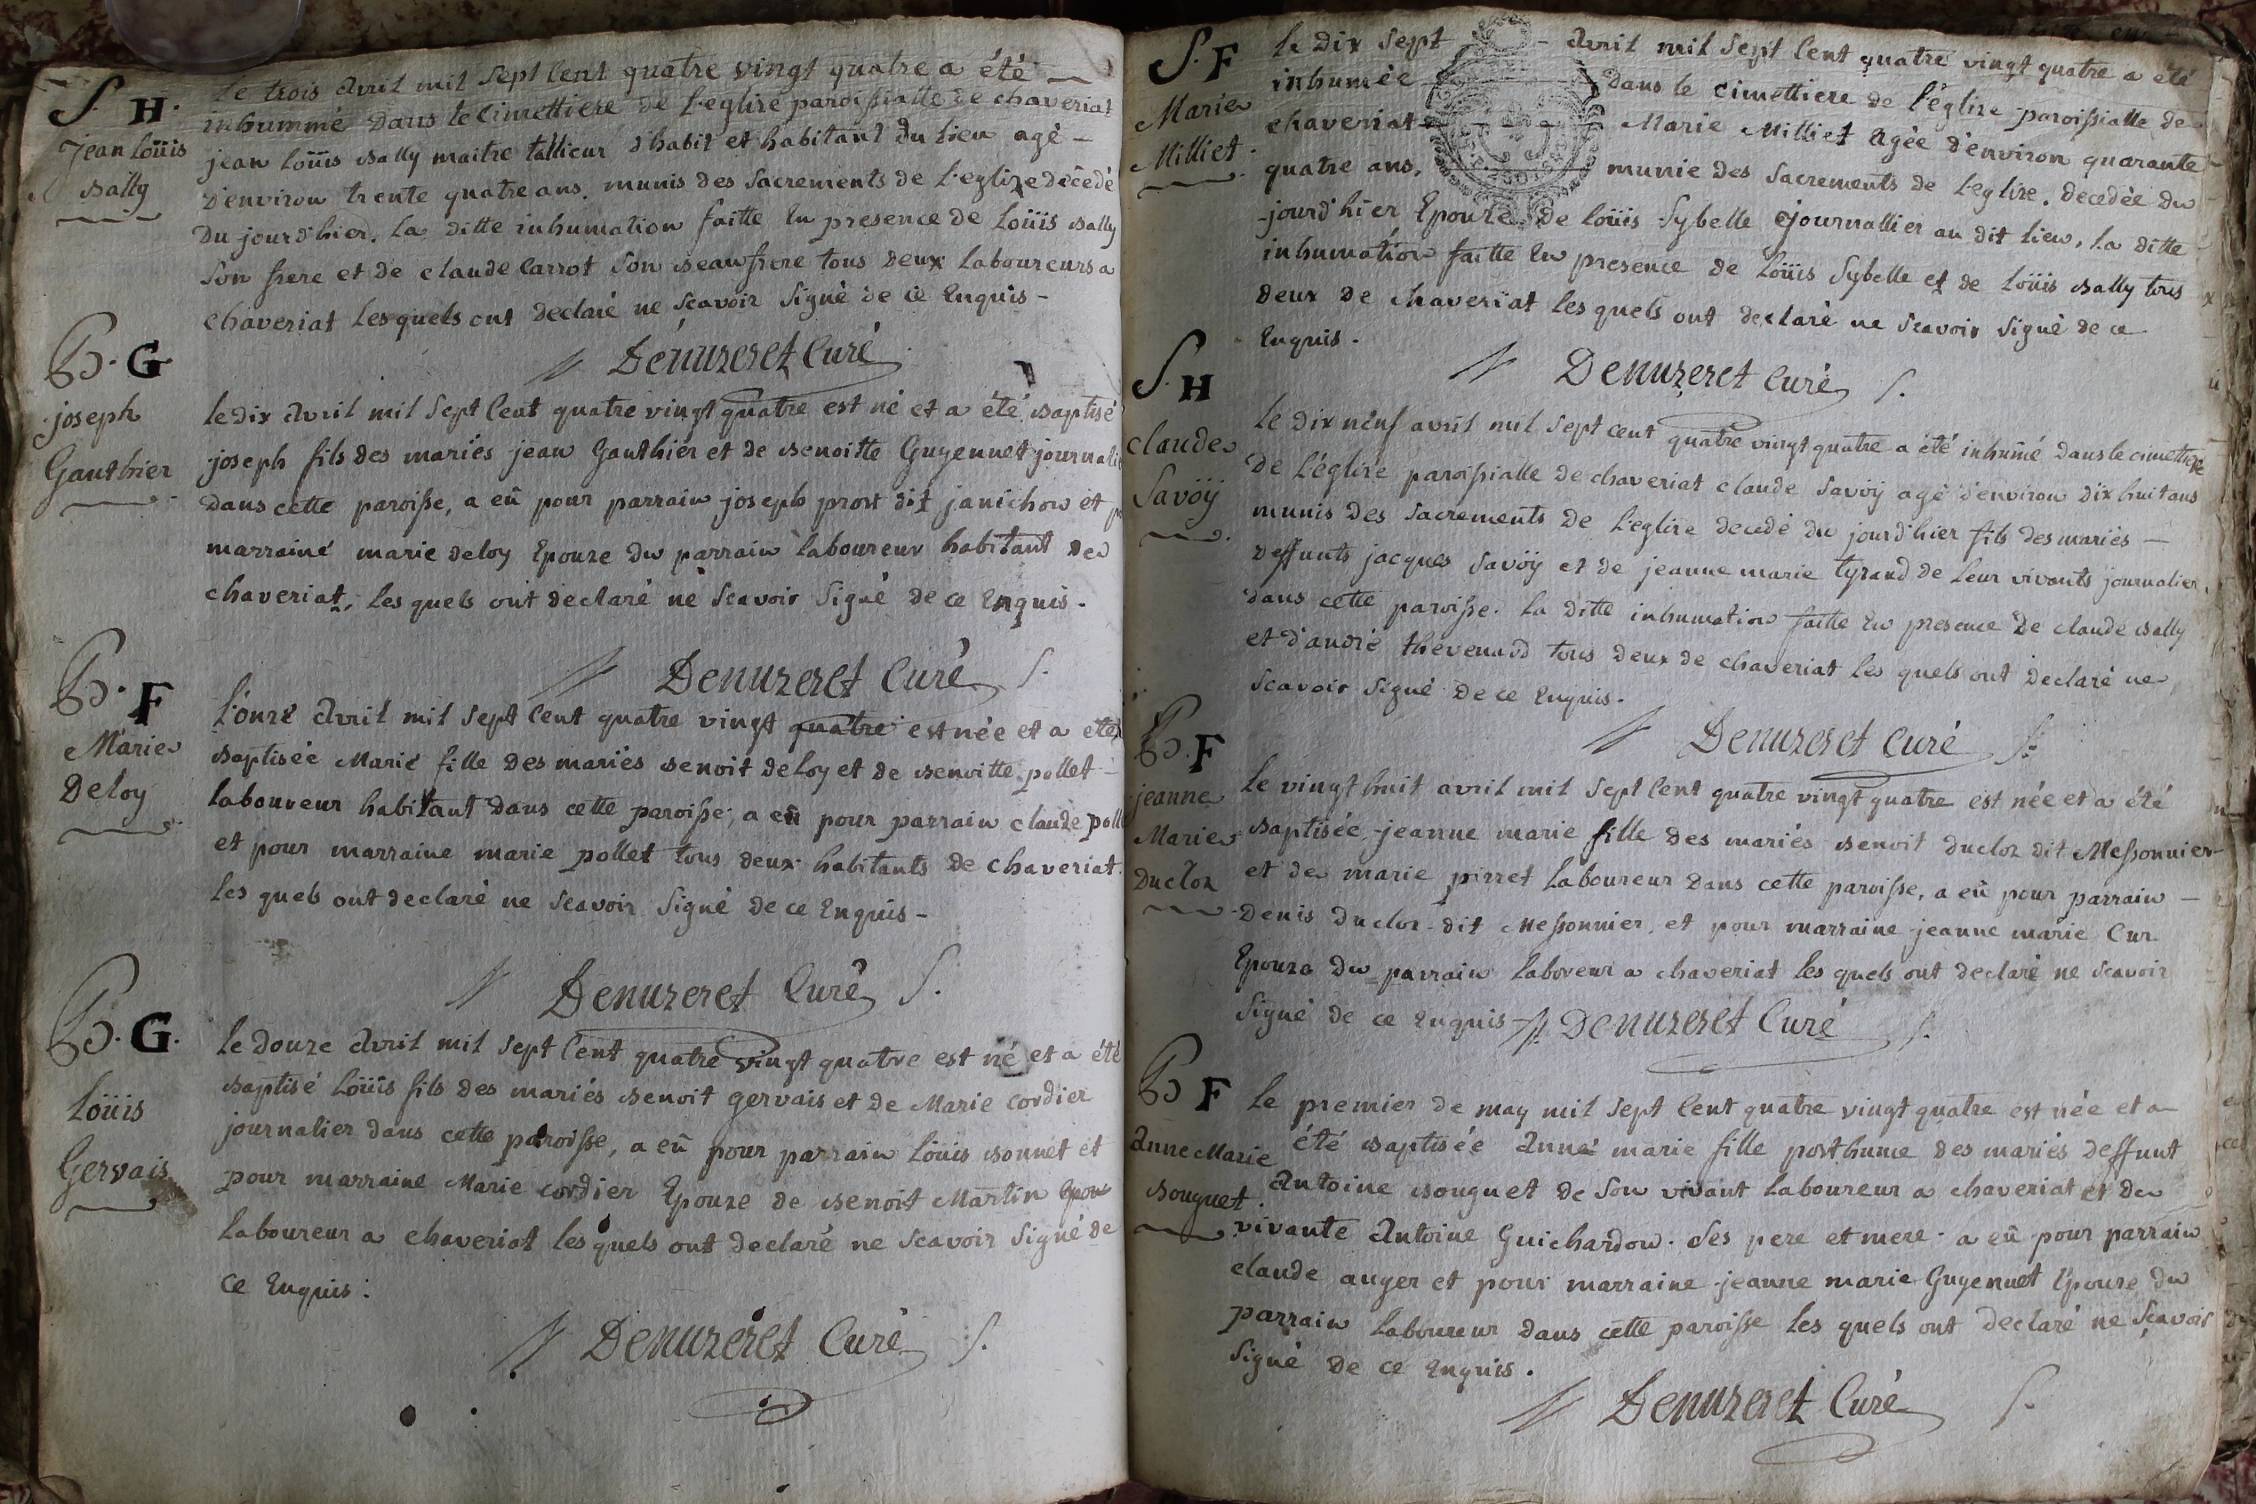 S. H.
Jean Loüis
Bally
le trois avril mil sept cent quatre vingt quatre a été
inhummé dans le cimettiere de l'eglise paroissialle de chaveriat
jean loüis Bally maitre tallieur d'habit et habitant du lieu agé
d'environ trente quatre ans. munis des sacrements de l'eglize décédé
du jourd'hier. la ditte inhumation faitte en presence de loüis Bally
son frere et de claude Carrot son Beaufrere tous deux laboureurs a
chaveriat lesquels ont declaré ne scavoir signé de ce enquis
Denuzeret Curé
B. G
joseph
Gauthier
le dix avril mil sept cent quatre vingt quatre est né et a été Baptisé
joseph fils des mariés jean Gauthier et de Benoitte Guyennet journalie
dans cette paroisse, a eû pour parrain joseph prost dit janichon et p
marraine marie deloy Epouze du parrain laboureur habitant de
chaveriat, les quels ont declaré ne scavoir signé de ce enquis.
Denuzeret Curé
B. F
Marie
Deloy
l'onze avril mil sept cent quatre vingt quatre est née et a eté
Baptisée Marie fille des mariés Benoit deloy et de Benoitte pollet
laboureur habitant dans cette paroisse, a eû pour parrain claude poll
et pour marraine marie pollet tous deux habitants de chaveriat.
les quels ont declaré ne scavoir signé de ce enquis
Denuzeret Curé
B. G.
Loüis
Gervais
le douze avril mil sept cent quatre vingt quatre est né et a été
Baptisé Loüis fils des mariés Benoit gervais et de Marie cordier
journalier dans cette paroisse, a eû pour parrain Loüis Bonnet et
pour marraine Marie cordier Epouze de Benoit Martin
laboureur a chaveriat les quels ont declaré ne scavoir signé de
ce enquis.
Denuzeret Curé
S. F
Marie
Milliet.
le dix sept avril mil sept cent quatre vingt quatre a été
inhumée dans le cimettiere de l'église paroissialle de
chaveriat Marie Milliet agée d'environ quarante
quatre ans, munie des sacrements de l'eglise. decedée du
jourd'hier Epouze de loüis Sybelle journallier au dit lieu. la ditte
inhumation faitte en presence de Loüis Sybelle et de loüis Bally tous
deux de chaveriat les quels ont declaré ne scavoir signé de ce
enquis.
Denuzeret Curé
S. H
claude
Savöy
le dix neuf avril mil sept cent quatre vingt quatre a été inhumé dans le cimettiere
de l'église paroissialle de chaveriat claude Savöy agé d'environ dix huit ans
munis des sacrements de l'eglise decedé du jourd'hier fils des mariés
deffunts jacques Savöy et de jeanne marie tyrand de leur vivants journalier
dans cette paroisse. la ditte inhumation faitte en presence de claude Bally
et d'andré thevenard tous deux de chaveriat les quels ont declaré ne
scavoir signé de ce enquis.
Denuzeret Curé
B. F
jeanne
Marie
Ducloz
le vingt huit avril mil sept cent quatre vingt quatre est née et a été
Baptisée jeanne marie fille des mariés Benoit ducloz dit Messonnier
et de marie pirret laboureur dans cette paroisse, a eû pour parrain
denis ducloz dit Messonnier, et pour marraine jeanne marie Cur
Epouze du parrain laboureur a chaveriat les quels ont declaré ne scavoir
signé de ce enquis
Denuzeret Curé
B F
Anne Marie
Bouguet.
le premier de may mil sept cent quatre vingt quatre est née et a
été Baptisée anne marie fille posthume des mariés deffunt
antoine Bouguet de son vivant laboureur a chaveriat et de
vivante antoine Guichardon. ses pere et mere. a eû pour parrain
claude auger et pour marraine jeanne marie Guyennet Epouze du
parrain laboureur dans cette paroisse les quels ont declaré ne scavoir
signé de ce enquis.
Denuzeret Curé